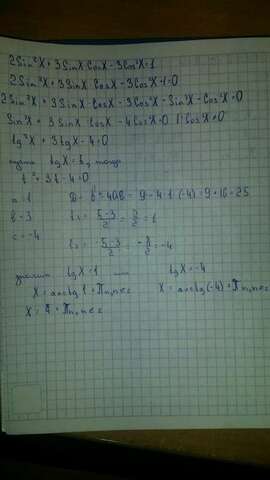 2Sin²X + 3SinX CosX - 3Cos²X = 1
2Sin²X + 3SinX CosX - 3Cos²X - 1 = 0
2Sin²X + 3SinX CosX - 3Cos²X - Sin²X - Cos²X = 0
Sin²X + 3SinX CosX - 4Cos²X = 0 |: Cos²X ≠ 0
tg²X + 3tgX - 4 = 0
пусть tgX = t, тогда
t² + 3t - 4 = 0
a = 1 D = b² - 4ac = 9 - 4·1·(-4) = 9 + 16 = 25
b = 3 t₁ = (5-3)/2 = 2/2 = 1
c = -4 t₂ = (-5-3)/2 = -8/2 = -4
значит tgX = 1 или tgX = -4
X = arctg1 + Πn, n∈Z X = arctg(-4) + Πn, n∈Z
+ Πn, n∈Z